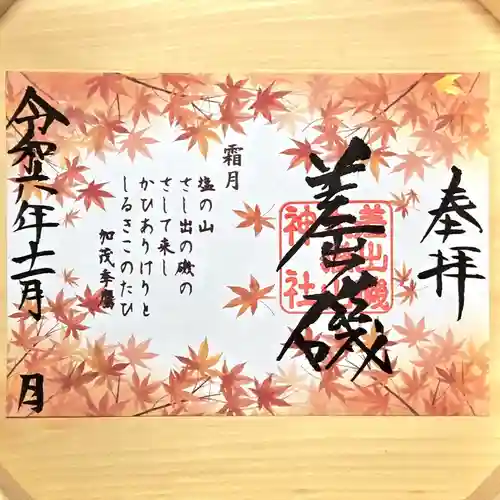 奉拝
差出磯
差出磯
神社
霜月
塩の山
さし出の磯の
さして来し
かひありけりと
しるきこのたひ
加茂季鷹
令和六年十一月
日